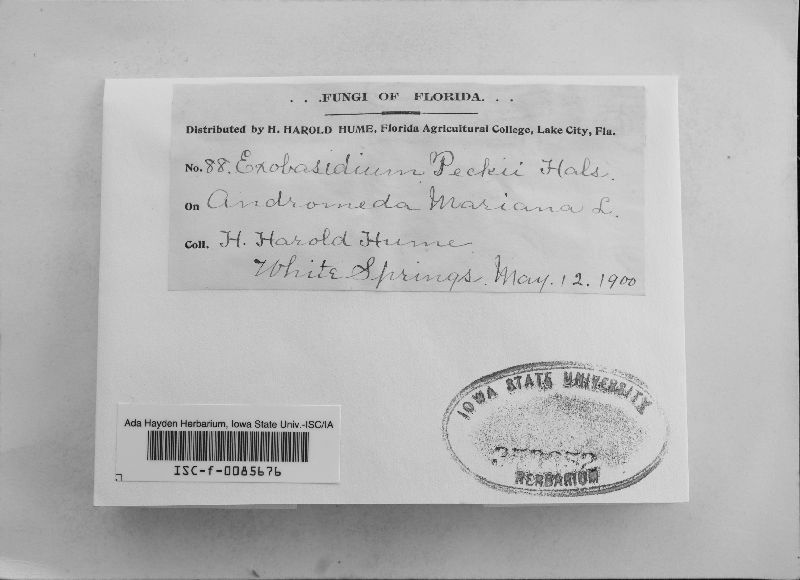 . . .FUNGI OF FLORIDA. . .
Distributed by H. HAROLD HUME, Florida Agricultural College, Lake City, Fla.
No. 88. Exobasidium Peckii Hals.
On Andromeda Mariana L.
Coll. H. Harold Hume
White Springs. May. 12. 1900
Ada Hayden Herbarium, Iowa State Univ.-ISC/IA
ISC-f-0085676
IOWA STATE UNIVERSITY
HERBARIUM